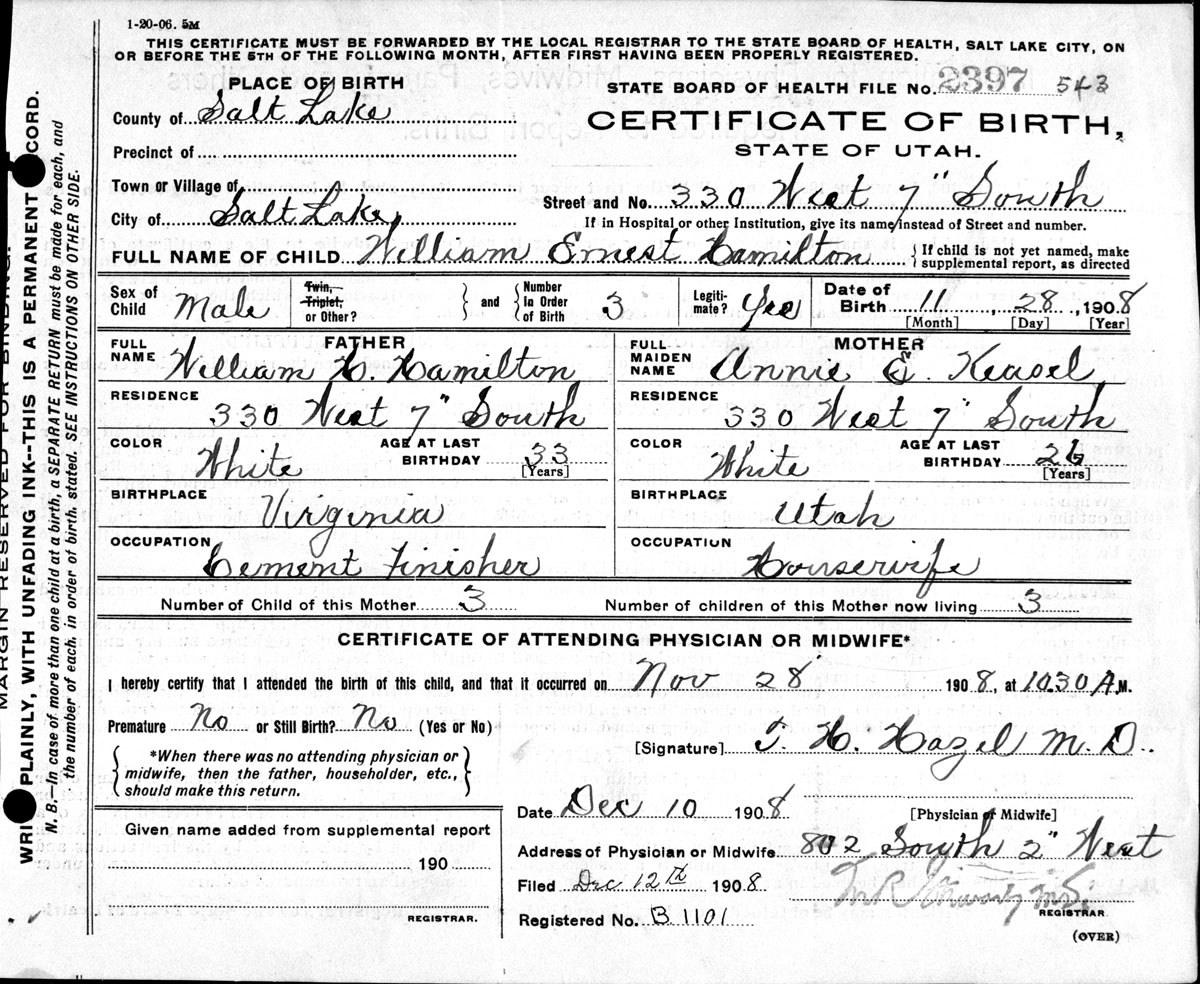 1-20-06. 5M
THIS CERTIFICATE MUST BE FORWARDED BY THE LOCAL REGISTRAR TO THE STATE BOARD OF HEALTH, SALT LAKE CITY, ON
OR BEFORE THE 5TH OF THE FOLLOWING MONTH, AFTER FIRST HAVING BEEN PROPERLY REGISTERED.
PLACE OF BIRTH
STATE BOARD OF HEALTH FILE No. 2397 543
County of Salt Lake
CERTIFICATE OF BIRTH,
STATE OF UTAH.
Precinct of
Town or Village of
Street and No. 330 West 7" South
City of Salt Lake
If in Hospital or other Institution, give its name instead of Street and number.
FULL NAME OF CHILD William Ernest Hamilton
{If child is not yet named, make
supplemental report, as directed
Sex of Child Male
Twin, Triplet, or Other?
and
Number In Order of Birth 3
Legiti-mate? Yes
Date of Birth 11, 28, 1908
[Month] [Day] [Year]
FATHER
FULL NAME William H. Hamilton
MOTHER
FULL MAIDEN NAME Annie E. Keasel
RESIDENCE 330 West 7" South
RESIDENCE 330 West 7" South
COLOR White
AGE AT LAST BIRTHDAY 33
[Years]
COLOR White
AGE AT LAST BIRTHDAY 26
[Years]
BIRTHPLACE Virginia
BIRTHPLACE Utah
OCCUPATION Cement Finisher
OCCUPATION Housewife
Number of Child of this Mother 3
Number of children of this Mother now living 3
CERTIFICATE OF ATTENDING PHYSICIAN OR MIDWIFE*
I hereby certify that I attended the birth of this child, and that it occurred on Nov 28 1908, at 10.30 A.M.
Premature No or Still Birth? No (Yes or No)
[Signature] T. H. Hazel M. D.
{*When there was no attending physician or
midwife, then the father, householder, etc.,
should make this return.}
[Physician or Midwife]
Date Dec 10 1908
Address of Physician or Midwife 802 South 2" West
Given name added from supplemental report
190
REGISTRAR.
Filed Dec 12th 1908
REGISTRAR.
Registered No. B 1101
(OVER)
MARGIN RESERVED FOR BINDING.
WRI PLAINLY, WITH UNFADING INK--THIS IS A PERMANENT CORD.
N. B.—In case of more than one child at a birth, a SEPARATE RETURN must be made for each, and
the number of each, in order of birth, stated. SEE INSTRUCTIONS ON OTHER SIDE.